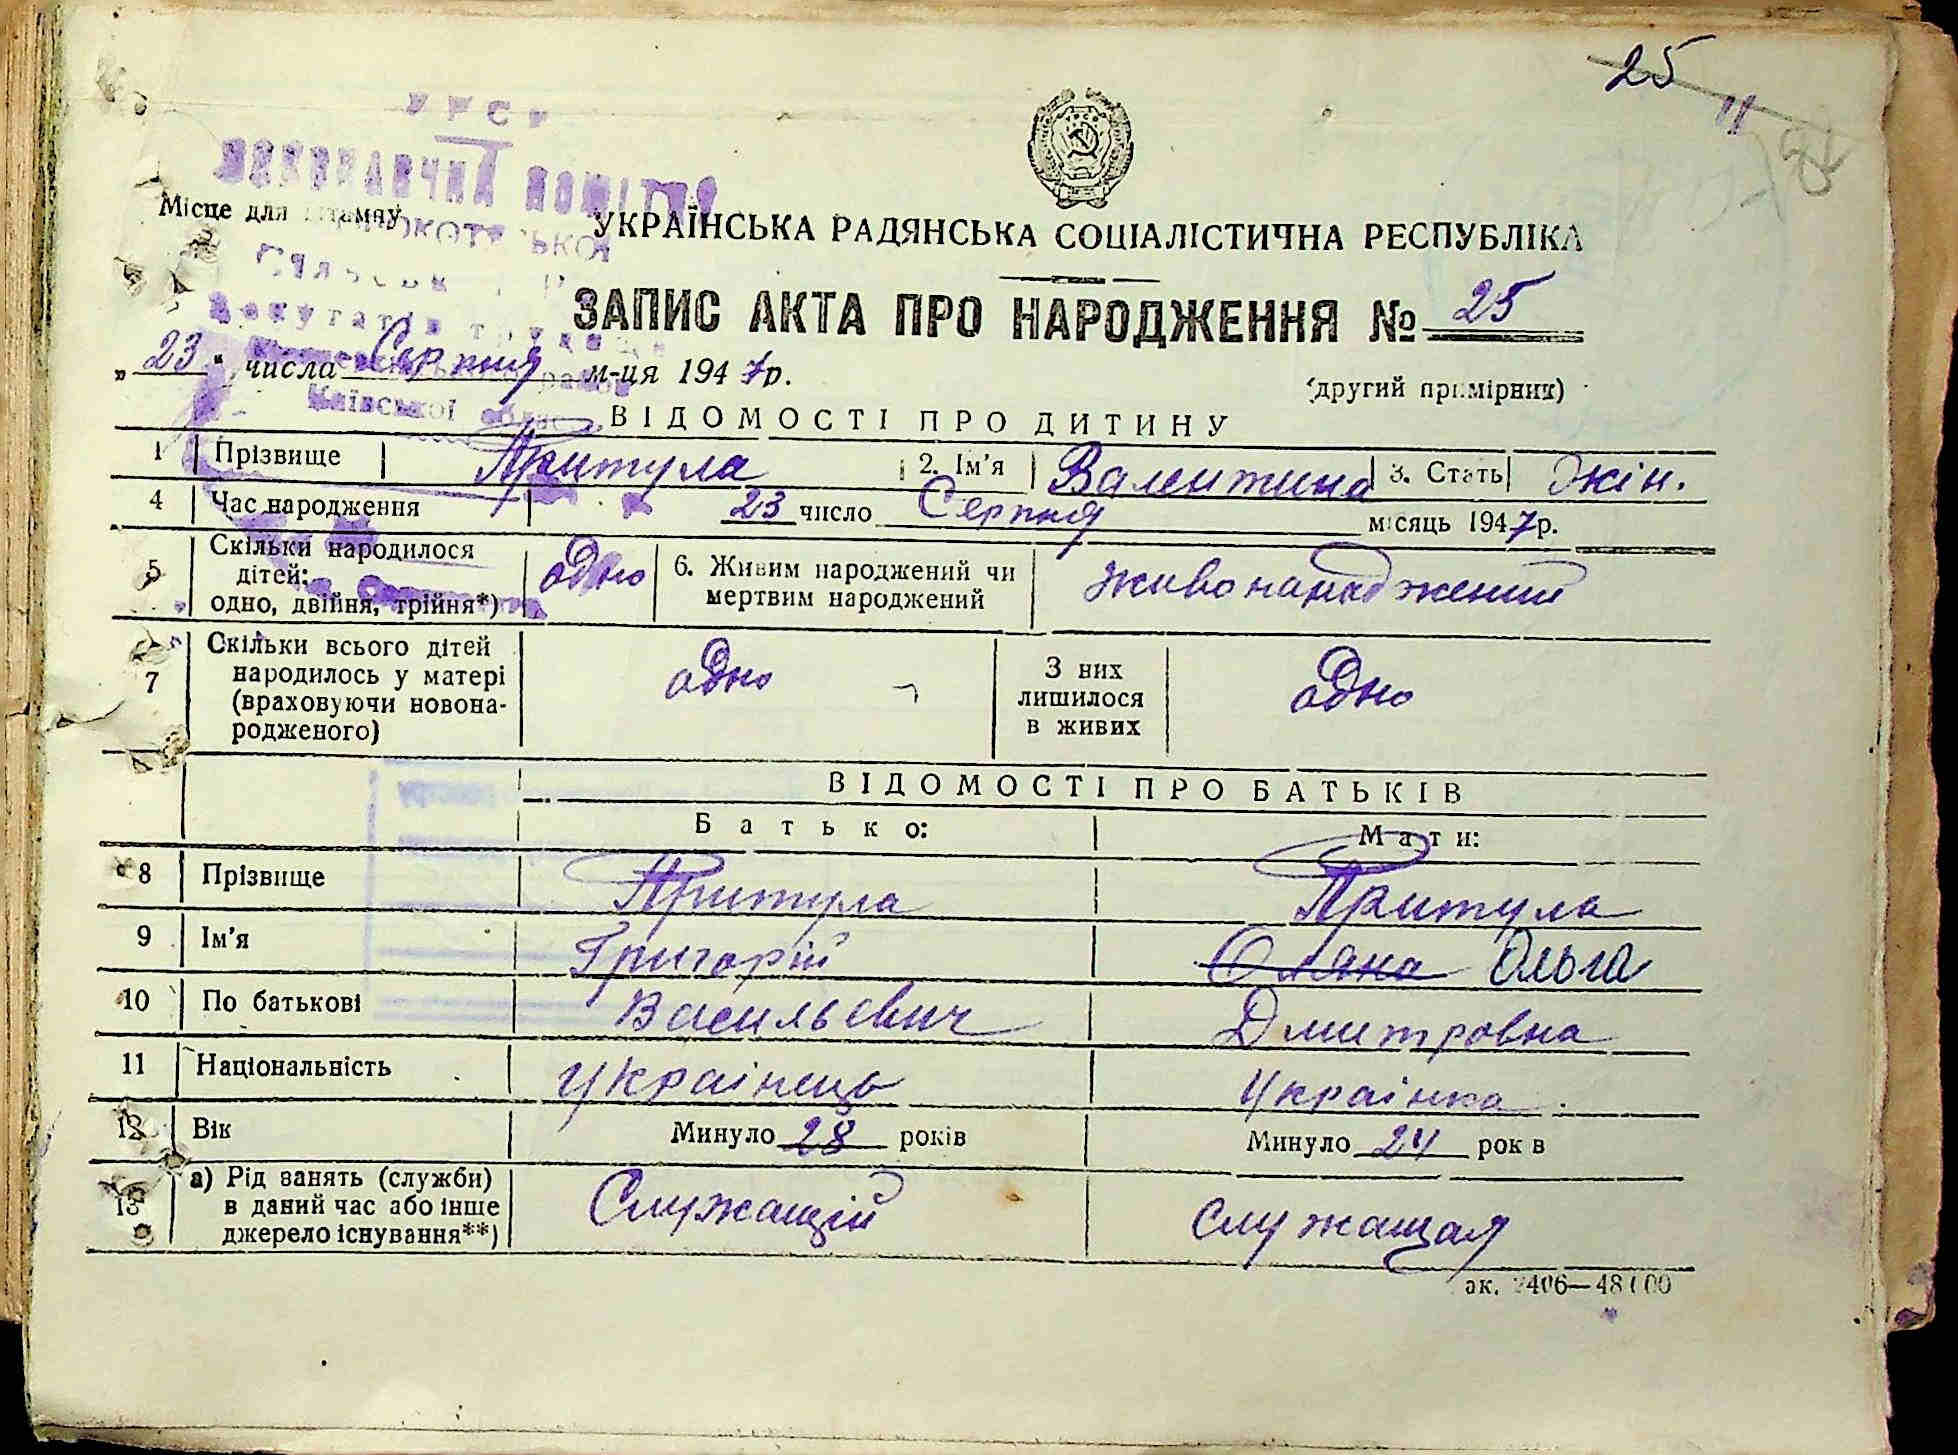 25
11
УРСР
ВИКОНАВЧИЙ КОМІТЕТ
Місце для штампу
УКРАЇНСЬКА РАДЯНСЬКА СОЦІАЛІСТИЧНА РЕСПУБЛІКА
ЗАПИС АКТА ПРО НАРОДЖЕННЯ № 25
Депутатів трудящ
„ 23 " числа Серпня м-ця 1947 р.
(другий примірник)
Київської облас
ВІДОМОСТІ ПРО ДИТИНУ
1 Прізвище Притула 2. Ім'я Валентина 3. Стать жін.
4 Час народження 23 число Серпня місяць 1947 р.
5 Скільки народилося дітей: одно, двійня, трійня*) одно 6. Живим народжений чи мертвим народжений живонанаджений
7 Скільки всього дітей народилось у матері (враховуючи новонародженого) одно З них лишилося в живих одно
ВІДОМОСТІ ПРО БАТЬКІВ
Батько: Мати:
8 Прізвище Притула Притула
9 Ім'я Григорій Оляна Ольга
10 По батькові Васильевич Дмитровна
11 Національність Українець Українка
12 Вік Минуло 28 років Минуло 24 років
13 а) Рід занять (служби) в даний час або інше джерело існування**) Служащій Служащая